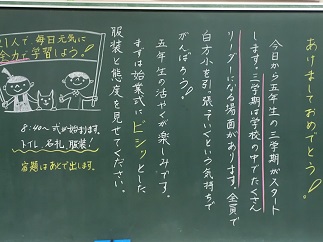 あけましておめでとう!
今日から五年生の三学期がスタート
します。三学期は学校の中でたくさん
リーダーになる場面があります。全員で
白方小を引っ張っていくという気持ちで
がんばろう!
五年生の活やくが楽しみです。
まずは始業式にビシッとした
服装と態度を見せてください。
21人で毎日元気に
全力で学習しよう!
8:40〜式が始まります。
トイレ、名札、服装!
宿題はあとで出します。